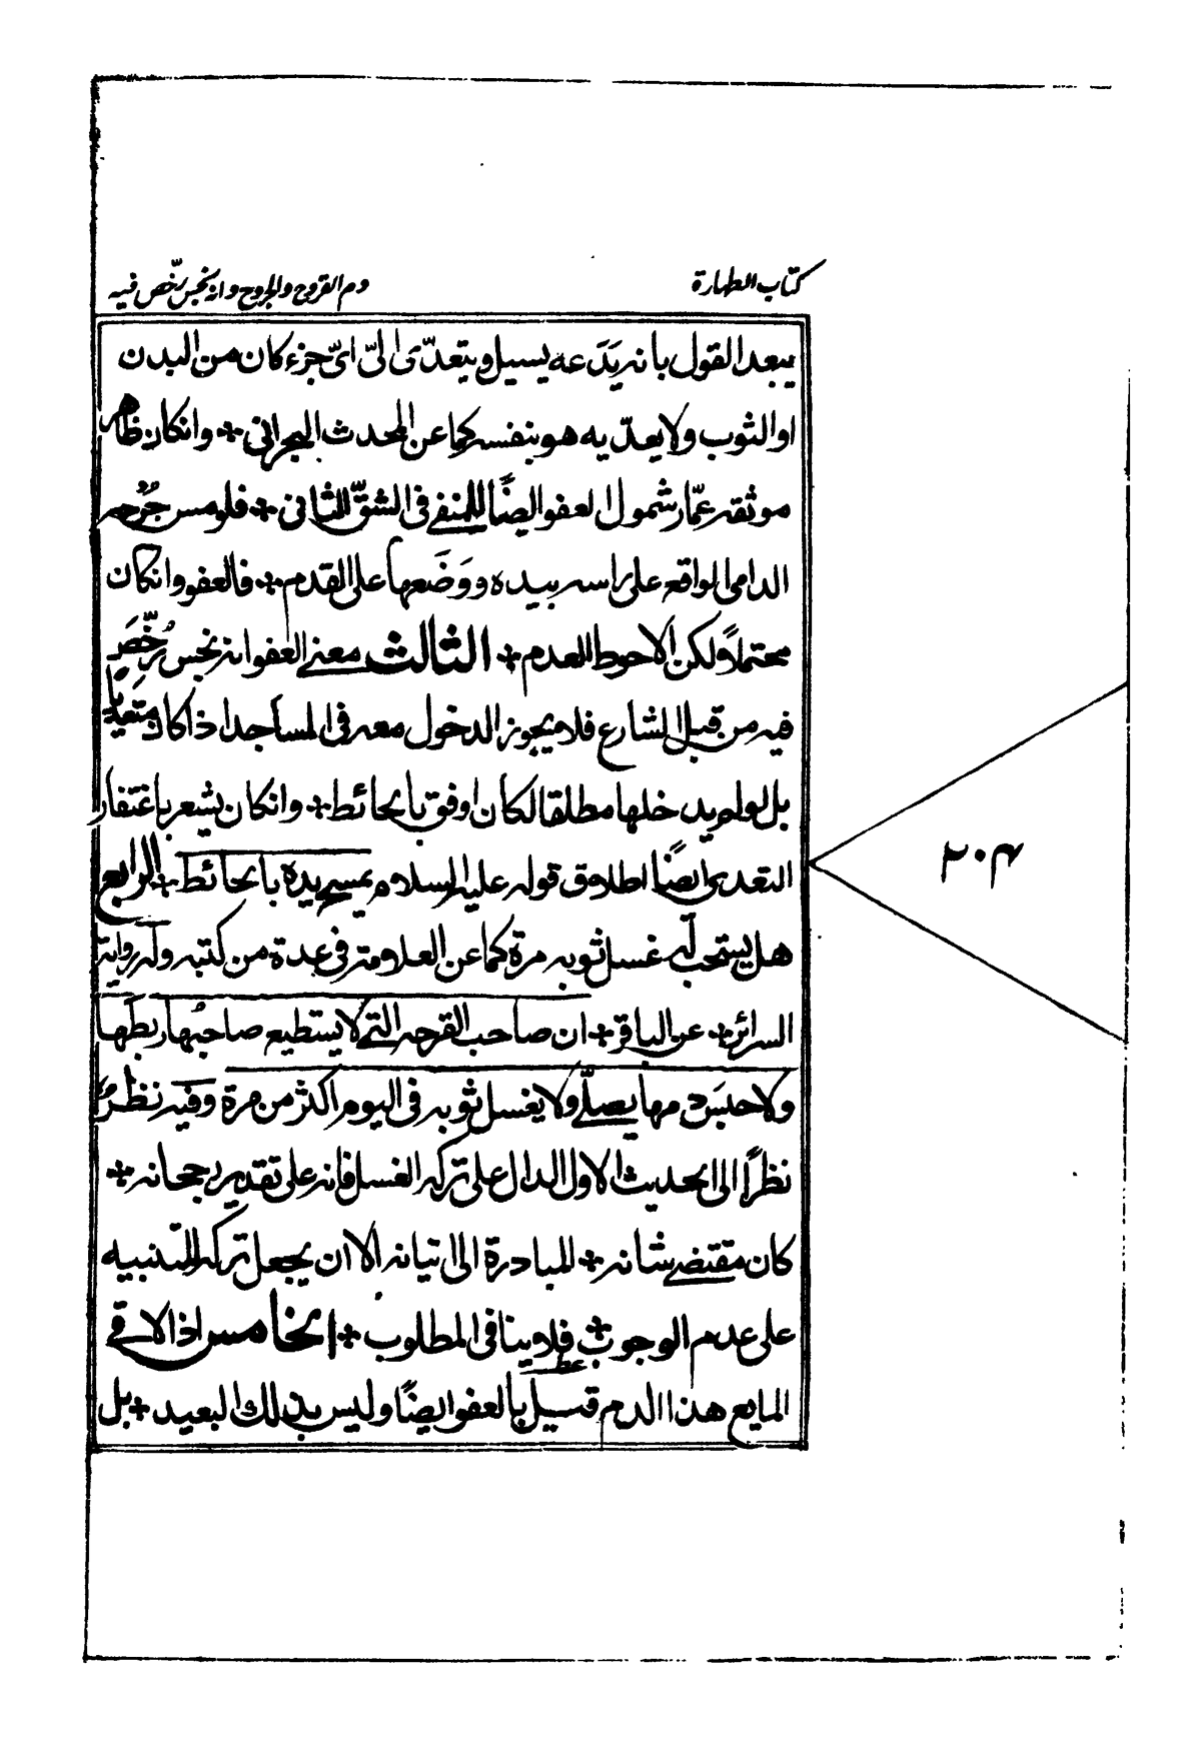 كتاب الطهارة
دم القروح والجروح وانه نجس رخّص فيه
يبعد القول بانه يَدَعه يسيل ويتعدّى الىّ اىّ جزء كان من البدن
او الثوب ولا يعدّيه هو بنفسه كما عن المحدث البحرانى + وانكان ظاهر
موثقه عمّار شمول العفو ايضًا للمنفے فى الشقّ الثانى + فلو مس جُرحه
الدامى الواقع على راسه بيده ووَضَعها على القدم + فالعفو وانكان
محتملاً ولكن الاحوط العدم + الثالث معنے العفو انه نجس رُخِّصَ
فيه من قبل الشارع فلا يجوز الدخول معه فى المساجد اذا كان متعدِّيًا
بل لو لم يدخلها مطلقا لكان اوفق بالحائط + وانكان يشعر باغتفار
التعدى ايضًا اطلاق قوله عليه السلام يمسح يده بالحائط + الرابع
هل يستحب له غسل ثوبه مرة كما عن العلامة فى عدة من كتبه وله رواية
السرائر + عن الباقر + ان صاحب القرحه التے لا يستطيع صاحبُها ربطَها
ولا حبسَ دمها يصلّے ولا يغسل ثوبه فى اليوم اكثر من مرة وفيه نظرٌ
نظرًا الى الحديث الاول الدال على تركه الغسل فانه على تقدير رجحانه +
كان مقتضے شانه + المبادرة الى اتيانه الا ان يجعل تركه للتنبيه
على عدم الوجوب + فلا ينافى المطلوب + الخامس اذا لاقے
المايع هذا الدم قيل بالعفو ايضًا وليس بذلك البعيد + بل
۲۰۴